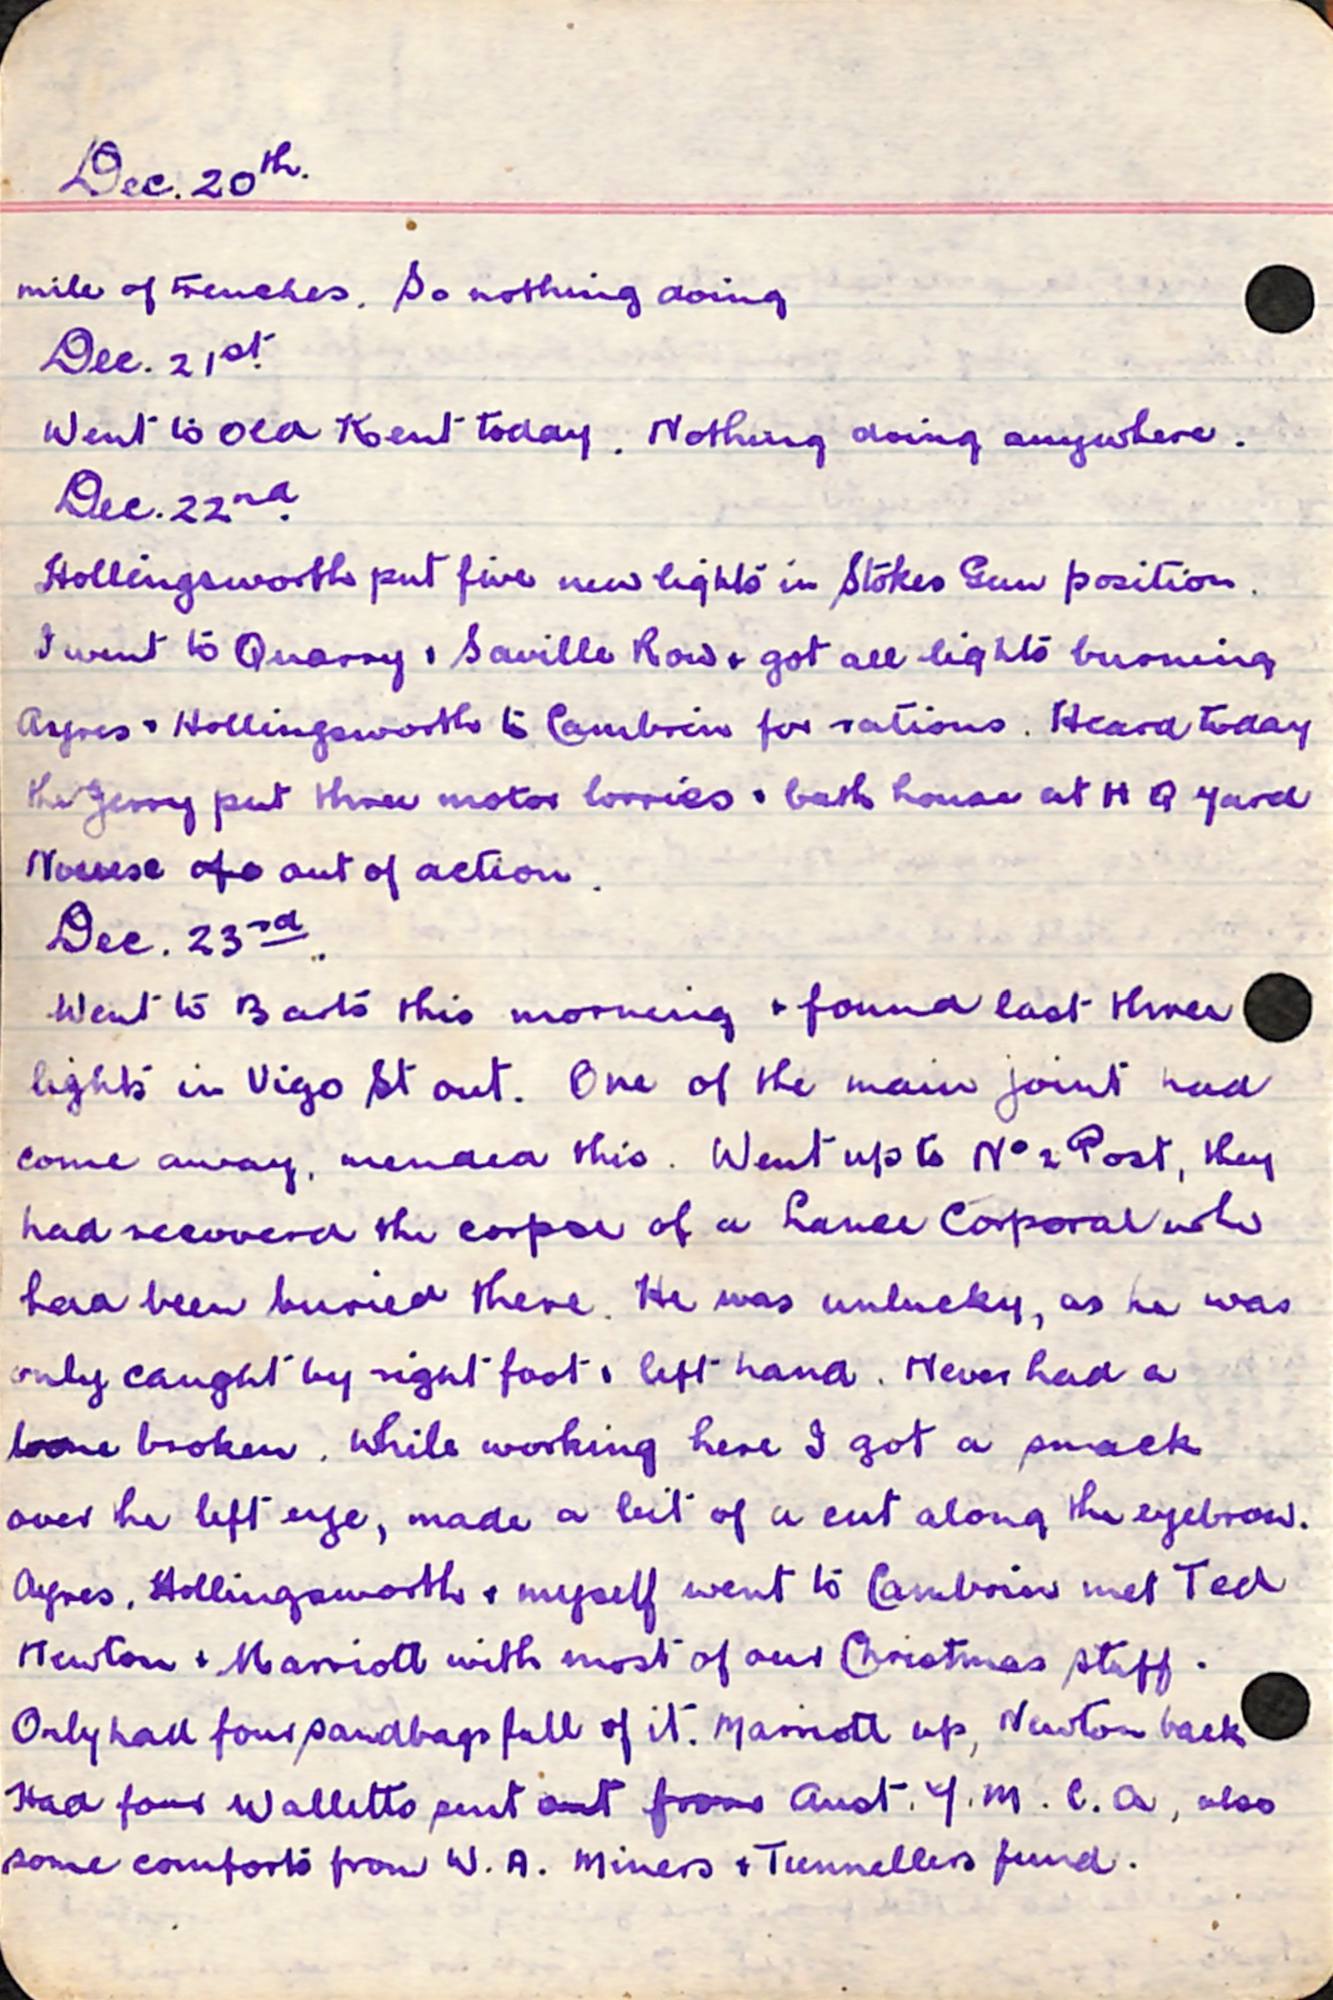 Dec. 20th.
mile of trenches. So nothing doing
Dec. 21st.
Went to Old Kent today. Nothing doing anywhere.
Dec. 22nd.
Hollingsworth put five new lights in Stokes Gun position.
I went to Quarry & Saville Row & got all lights burning
Ayres & Hollingsworth to Cambrin for rations. Heard today
the Jerry put three motor lorries & bath house at H Q yard
Noeuse of a out of action.
Dec. 23rd.
Went to Barts this morning & found last three
lights in Vigo St out. One of the main joint had
come away, mended this. Went up to No 2 Post, they
had recoverd the corpse of a Lance Corporal who
had been buried there. He was unlucky, as he was
only caught by right foot & left hand. Never had a
bone broken. While working here I got a smack
over he left eye, made a bit of a cut along the eyebrow.
Ayres, Hollingsworth & myself went to Cambrin met Ted
Newton & Marriott with most of our Christmas stuff.
Only had four sandbags full of it. Marriott up, Newton back
Had four Walletts sent out from Aust. Y. M. C. A, also
some comforts from W. A. Miners & Tunnellers fund.